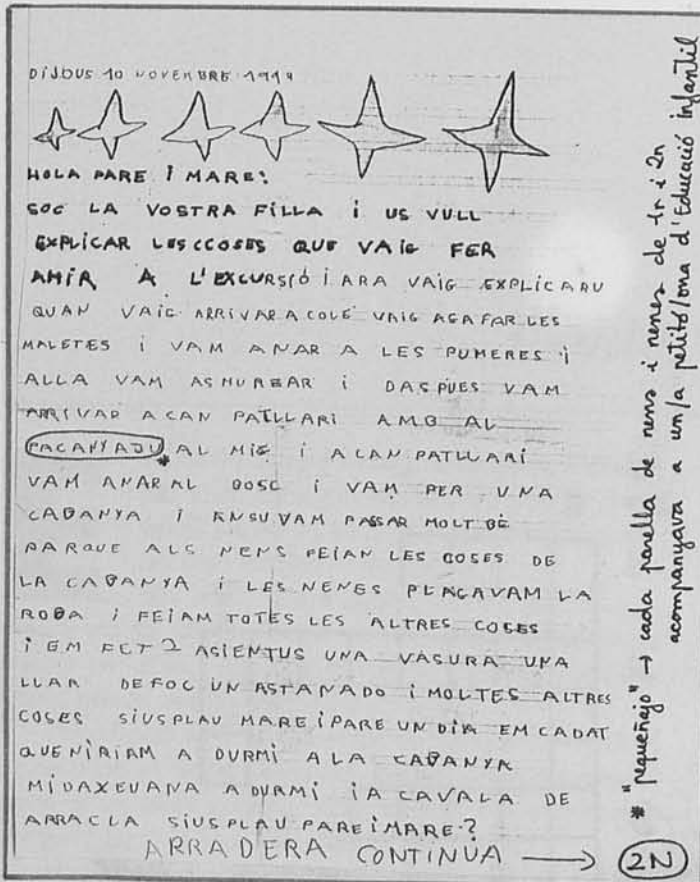 DIJOUS 10 NOVEMBRE 1994
HOLA PARE I MARE:
SOC LA VOSTRA FILLA i US VULL
EXPLICAR LES CCOSES QUE VAIG FER
AHIR A L'EXCURSIÓ i ARA VAIG EXPLICARU
QUAN VAIG ARRIVAR A COLE VAIG AGAFAR LES
MALETES i VAM ANAR A LES PUMERES i
ALLA VAM ASMURSAR i DASPUES VAM
ARRIVAR A CAN PATLLARI AMB AL
PACANYAJU* AL MIG i A CAN PATLLARI
VAM ANAR AL BOSC i VAM PER UNA
CABANYA i ENSU VAM PASSAR MOLT BÉ
PARQUE ALS NENS FEIAN LES COSES DE
LA CABANYA i LES NENES PLAGAVAM LA
ROBA i FEIAM TOTES LES ALTRES COSES
i EM FET 2 ASIENTUS UNA VASURA UNA
LLAR DE FOC UN ASTANADO i MOLTES ALTRES
COSES SIUSPLAU MARE i PARE UN DIA EM CADAT
QUE NIRIAM A DURMI A LA CABANYA
MIDAXEU ANA A DURMI iA CAVALA DE
ARRACLA SIUSPLAU PARE i MARE?
ARRADERA CONTINUA → 2N
* "pequeñajo" → cada parella de nens i nenes de 1r i 2n
acompanyava a un/a petitó/ona d'Educació infantil